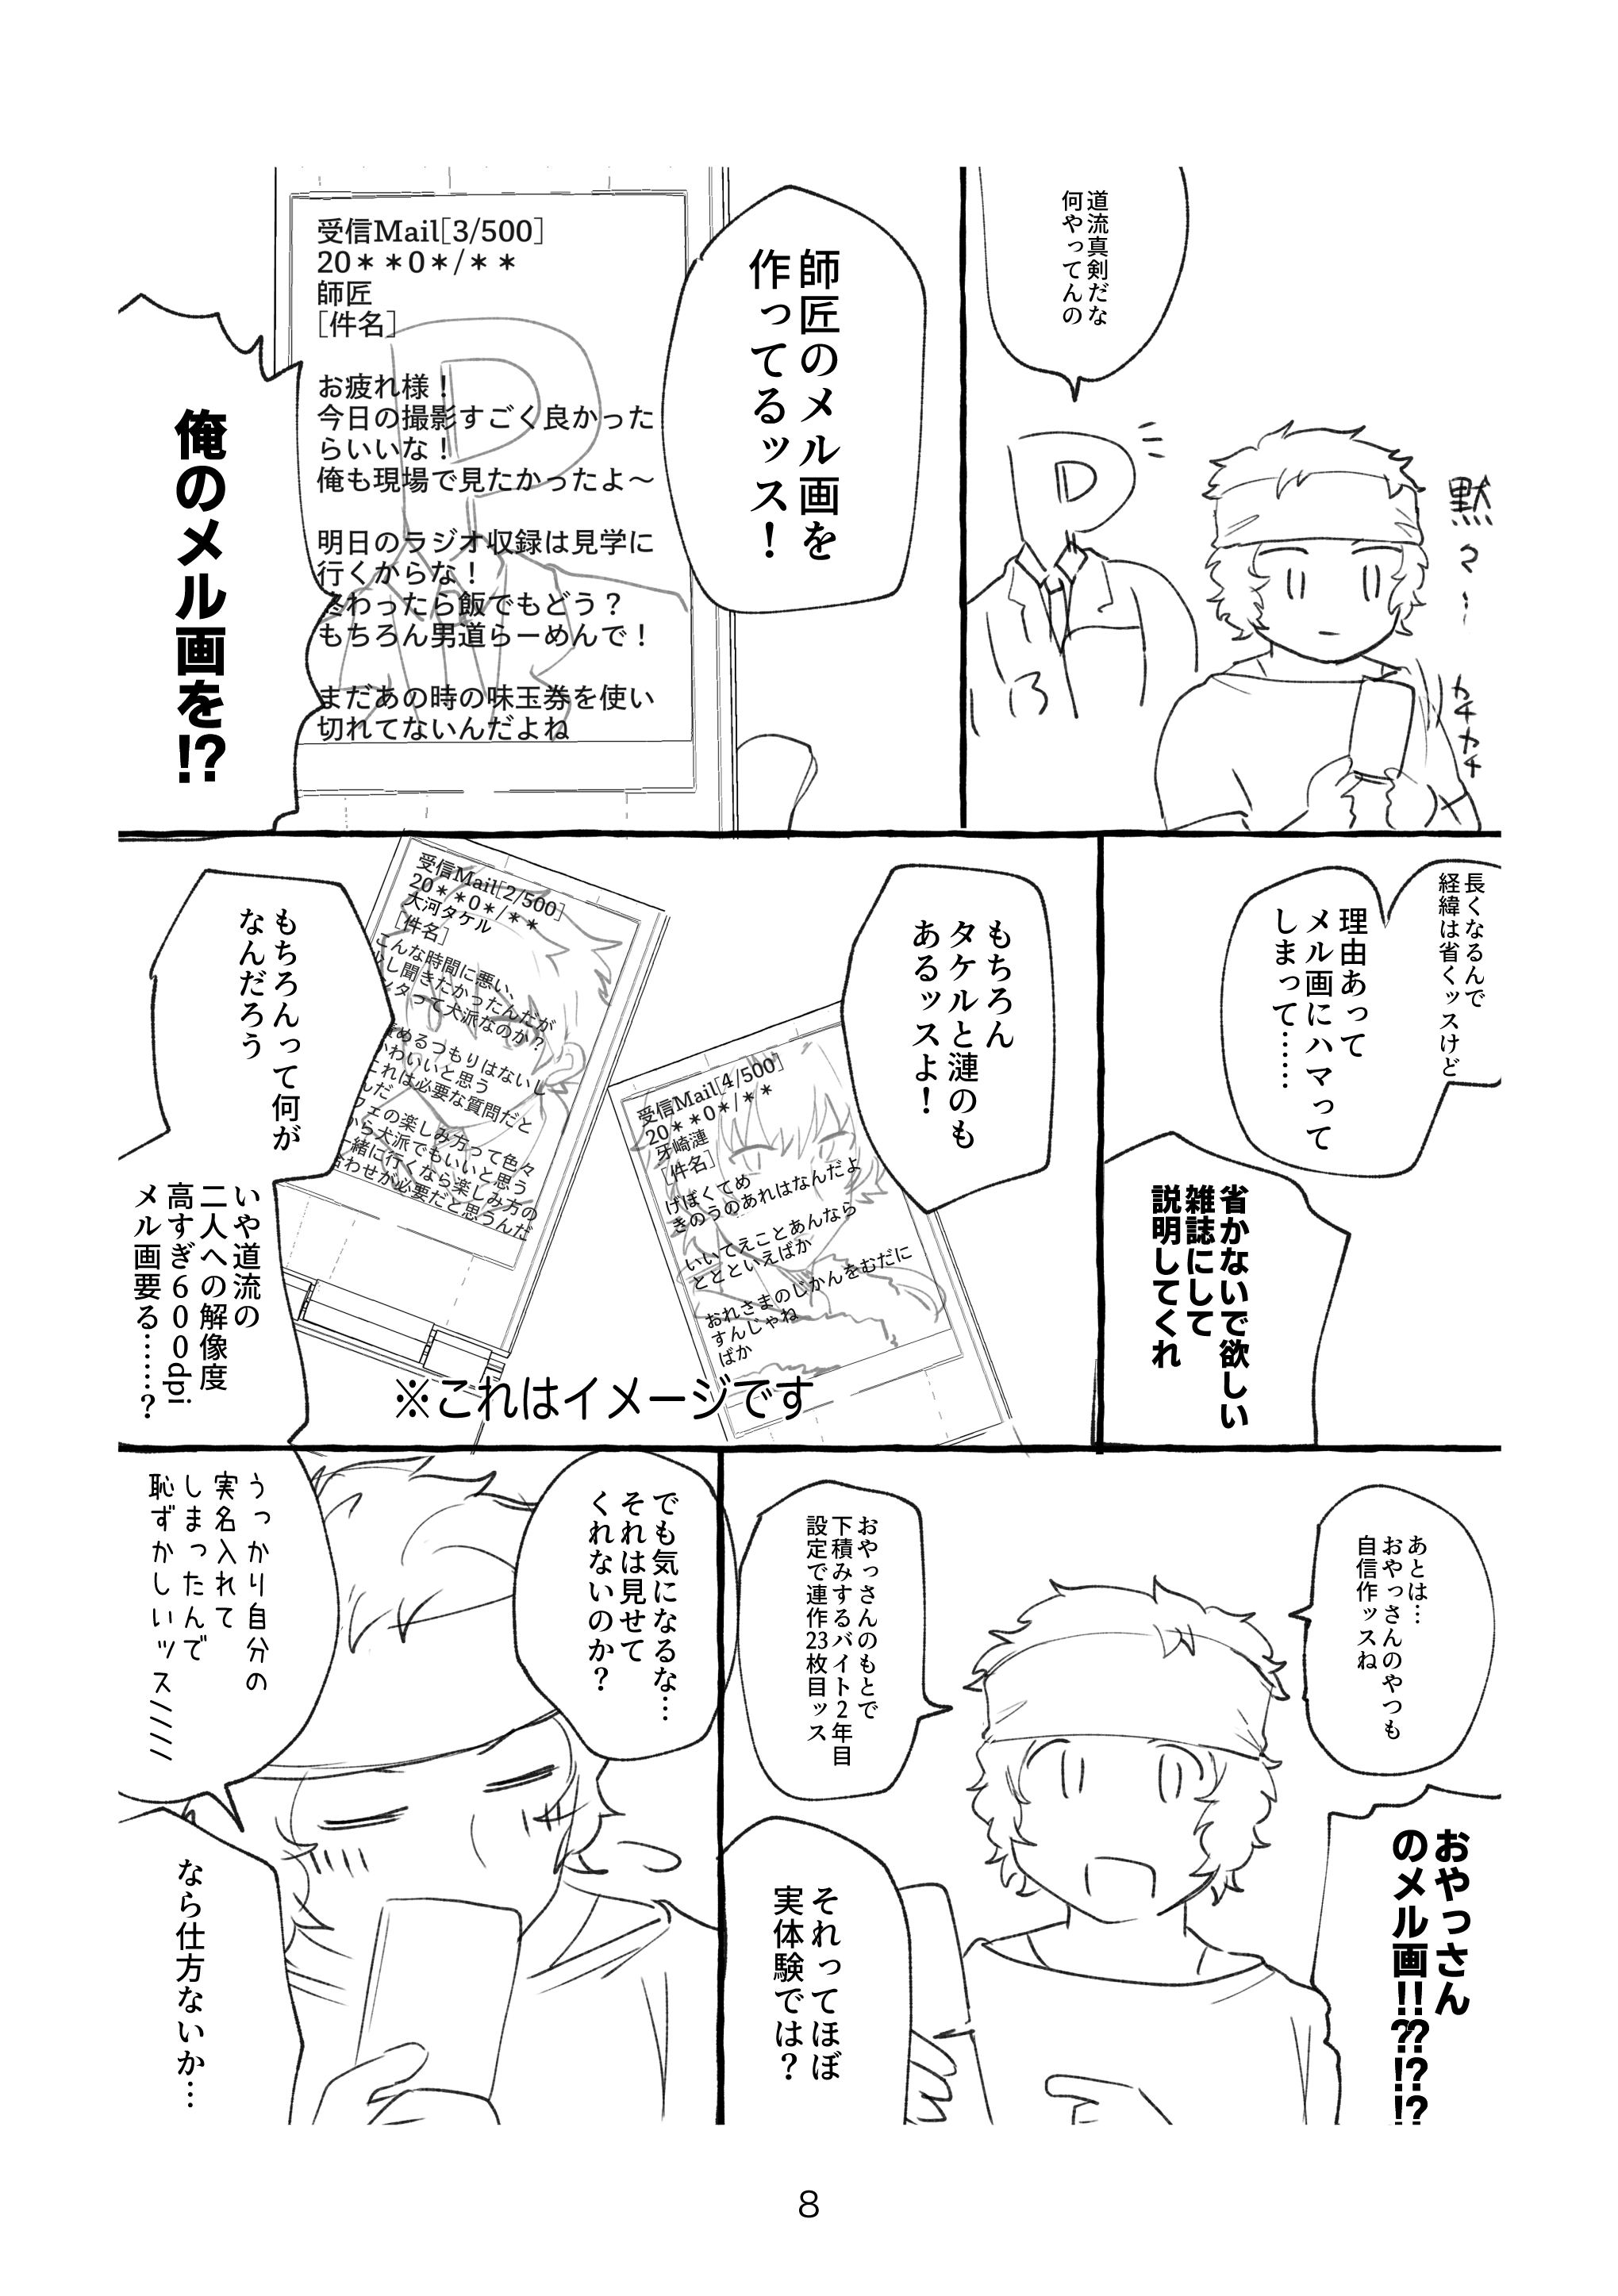 道流真剣だな
何やってんの
黙々…
カチカチ
師匠のメル画を
作ってるッス！
受信Mail[3/500]
20＊＊0＊/＊＊
師匠
[件名]
お疲れ様！
今日の撮影すごく良かった
らいいな！
俺も現場で見たかったよ～
明日のラジオ収録は見学に
行くからな！
終わったら飯でもどう？
もちろん男道らーめんで！
まだあの時の味玉券を使い
切れてないんだよね
俺のメル画を!?
長くなるんで
経緯は省くッスけど
理由あって
メル画にハマって
しまって……
省かないで欲しい
雑誌にして
説明してくれ
もちろん
タケルと漣のも
あるッスよ！
受信Mail[4/500]
20＊＊0＊/＊＊
牙崎漣
[件名]
げぼくてめ
きのうのあれはなんだよ
いいてえことあんなら
とととといえばか
おれさまのじかんをむだに
すんじゃね
ばか
受信Mail[2/500]
20＊＊0＊/＊＊
大河タケル
[件名]
こんな時間に悪い、
少し聞きたかったんだが
ンタって犬派なのか？
責めるつもりはないし
かわいいと思う
これは必要な質問だと
んだ
フェの楽しみ方って色々
から犬派でもいいと思う
一緒に行くなら楽しみ方の
合わせが必要だと思うんだ
※これはイメージです
もちろんって何が
なんだろう
いや道流の
二人への解像度
高すぎ600dpi
メル画要る……？
あとは…
おやっさんのやつも
自信作ッスね
おやっさん
のメル画!!??!?!?
おやっさんのもとで
下積みするバイト2年目
設定で連作23枚目ッス
それってほぼ
実体験では？
でも気になるな…
それは見せて
くれないのか？
うっかり自分の
実名入れて
しまったんで
恥ずかしいッス////
なら仕方ないか…
8